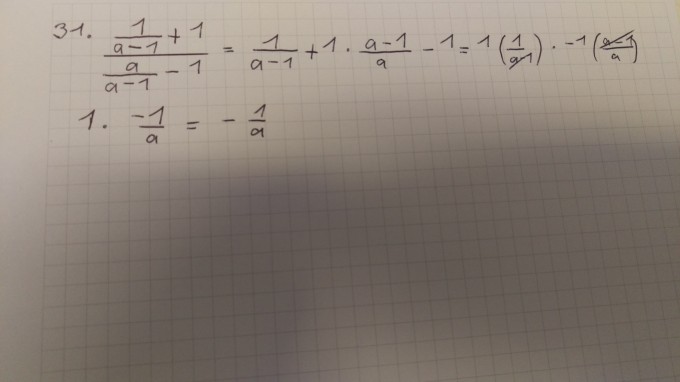 31. \frac{\frac{1}{a-1}+1}{\frac{a}{a-1}-1} = \frac{1}{a-1}+1 \cdot \frac{a-1}{a}-1 = 1\left(\frac{1}{a-1}\right) \cdot -1\left(\frac{a-1}{a}\right)
1 \cdot \frac{-1}{a} = -\frac{1}{a}